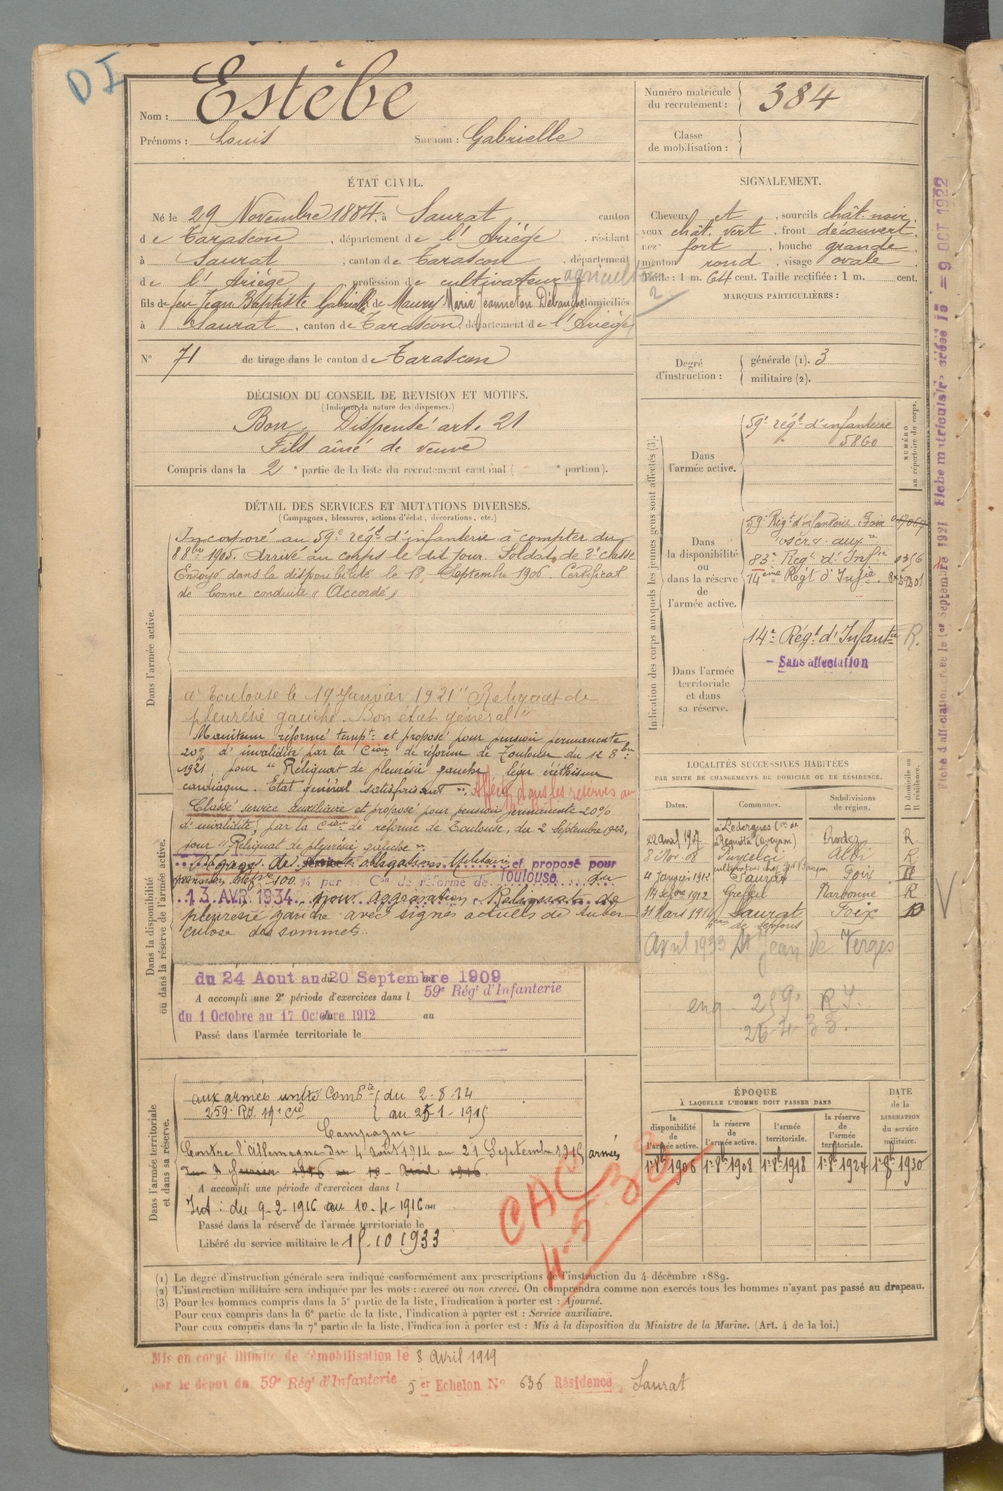 DI
Nom : Estèbe
Prénoms : Louis Surnom : Gabrielle
Numéro matricule du recrutement : 384
Classe de mobilisation :
ÉTAT CIVIL.
Né le 29 Novembre 1884, à Saurat canton
de Tarascon, département de l'Ariège, résidant
à Saurat, canton de Tarascon, département
de l'Ariège, profession de cultivateur
fils de feu Jean Baptiste Gabrielle et de Maury Marie Jeanne domiciliés
à Saurat, canton de Tarascon, département de l'Ariège
N° 71 de tirage dans le canton de Tarascon
SIGNALEMENT.
Cheveux et, sourcils chât. noir,
yeux chât. vert, front découvert,
nez fort, bouche grande,
menton rond, visage ovale.
Taille : 1 m. 64 cent. Taille rectifiée : 1 m. cent.
MARQUES PARTICULIÈRES :
Degré d'instruction : générale (1). 3
militaire (2).
DÉCISION DU CONSEIL DE REVISION ET MOTIFS.
(Indiquer la nature des dispenses.)
Bon Dispensé art. 21
Fils aîné de veuve
Compris dans la 2e partie de la liste du recrutement cantonal ( portion).
DÉTAIL DES SERVICES ET MUTATIONS DIVERSES.
(Campagnes, blessures, actions d'éclat, décorations, etc.)
Dans l'armée active.
Incorporé au 59e régt d'infanterie à compter du
8 8bre 1905. Arrivé au corps le dit jour. Soldat de 2e classe
Envoyé dans la disponibilité le 18 Septembre 1906. Certificat
de bonne conduite "Accordé"
à Toulouse le 19 Janvier 1921 "Reliquat de
pleurésie gauche. Bon état général"
réformé tempre et proposé pour pension permanente
20% d'invalidité par la Cion de réforme de Toulouse du 12 8bre
1921 pour "Reliquat de pleurésie gauche léger éréthisme
cardiaque. Etat général satisfaisant".
Classé service auxiliaire et proposé pour pension permanente 20%
d'invalidité, par la Cion de réforme de Toulouse, du 2 Septembre 1922,
pour "Reliquat de pleurésie gauche".
Dégagé de obligations Militaires et proposé pour
100 % par Con de réforme de Toulouse du
13 AVR 1934 pour aggravation. Reliquat de
pleurésie gauche avec signes actuels de tuber
culose des sommets.
Dans la disponibilité ou dans la réserve de l'armée active.
du 24 Aout au 20 Septembre 1909
A accompli une 2e période d'exercices dans l 59e Régt d'Infanterie
du 1 Octobre au 17 Octobre 1912 au
Passé dans l'armée territoriale le
Dans l'armée territoriale et dans sa réserve.
aux armées unités Combes du 2-8-14
259e R.I. 19e Cie au 25-1-1915
Campagne
Contre l'Allemagne du 4 août 1914 au 21 Septembre 1915 armées
A accompli une période d'exercices dans l
Int : du 9-2-1916 au 10-4-1916
Passé dans la réserve de l'armée territoriale le
Libéré du service militaire le 15-10-1933
CAC
4-5-38
Indication des corps auxquels les jeunes gens sont affectés (3).
NUMÉRO au répertoire du corps.
Dans l'armée active.
59e régt d'infanterie
5860
Dans la disponibilité ou dans la réserve de l'armée active.
59e Régt d'infanterie Foix
83e Regt d'Infrie
14ème Régt d'Infie
Dans l'armée territoriale et dans sa réserve.
14e Régt d'Infantie R.
Sans affectation
LOCALITÉS SUCCESSIVES HABITÉES
PAR SUITE DE CHANGEMENTS DE DOMICILE OU DE RÉSIDENCE.
Dates. Communes. Subdivisions de région. D domicile ou R résidence.
22 avril 1907 à Lédergues Requista (Aveyron) Rodez R
8 Nov. 08 Puycelci Albi R
4 Janvier 1912 Saurat Foix
14 1912 Greffeil Narbonne R
31 Mars 1914 Saurat Foix D
Avril 1933 St Jean de Verges
eng 259e R.I.
ÉPOQUE
À LAQUELLE L'HOMME DOIT PASSER DANS
la disponibilité de l'armée active. la réserve de l'armée active. l'armée territoriale. la réserve de l'armée territoriale.
DATE de la LIBÉRATION du service militaire.
1er 8bre 1906 1er 8bre 1908 1er 8bre 1918 1er 8bre 1924 1er 8bre 1930
(1) Le degré d'instruction générale sera indiqué conformément aux prescriptions de l'instruction du 4 décembre 1889.
(2) L'instruction militaire sera indiquée par les mots : exercé ou non exercé. On comprendra comme non exercés tous les hommes n'ayant pas passé au drapeau.
(3) Pour les hommes compris dans la 5e partie de la liste, l'indication à porter est : Ajourné.
Pour ceux compris dans la 6e partie de la liste, l'indication à porter est : Service auxiliaire.
Pour ceux compris dans la 7e partie de la liste, l'indication à porter est : Mis à la disposition du Ministre de la Marine. (Art. 4 de la loi.)
Mis en congé illimité de démobilisation le 8 Avril 1919
par le dépôt du 59e Régt d'Infanterie 5 er Echelon No 636 Résidence, Saurat